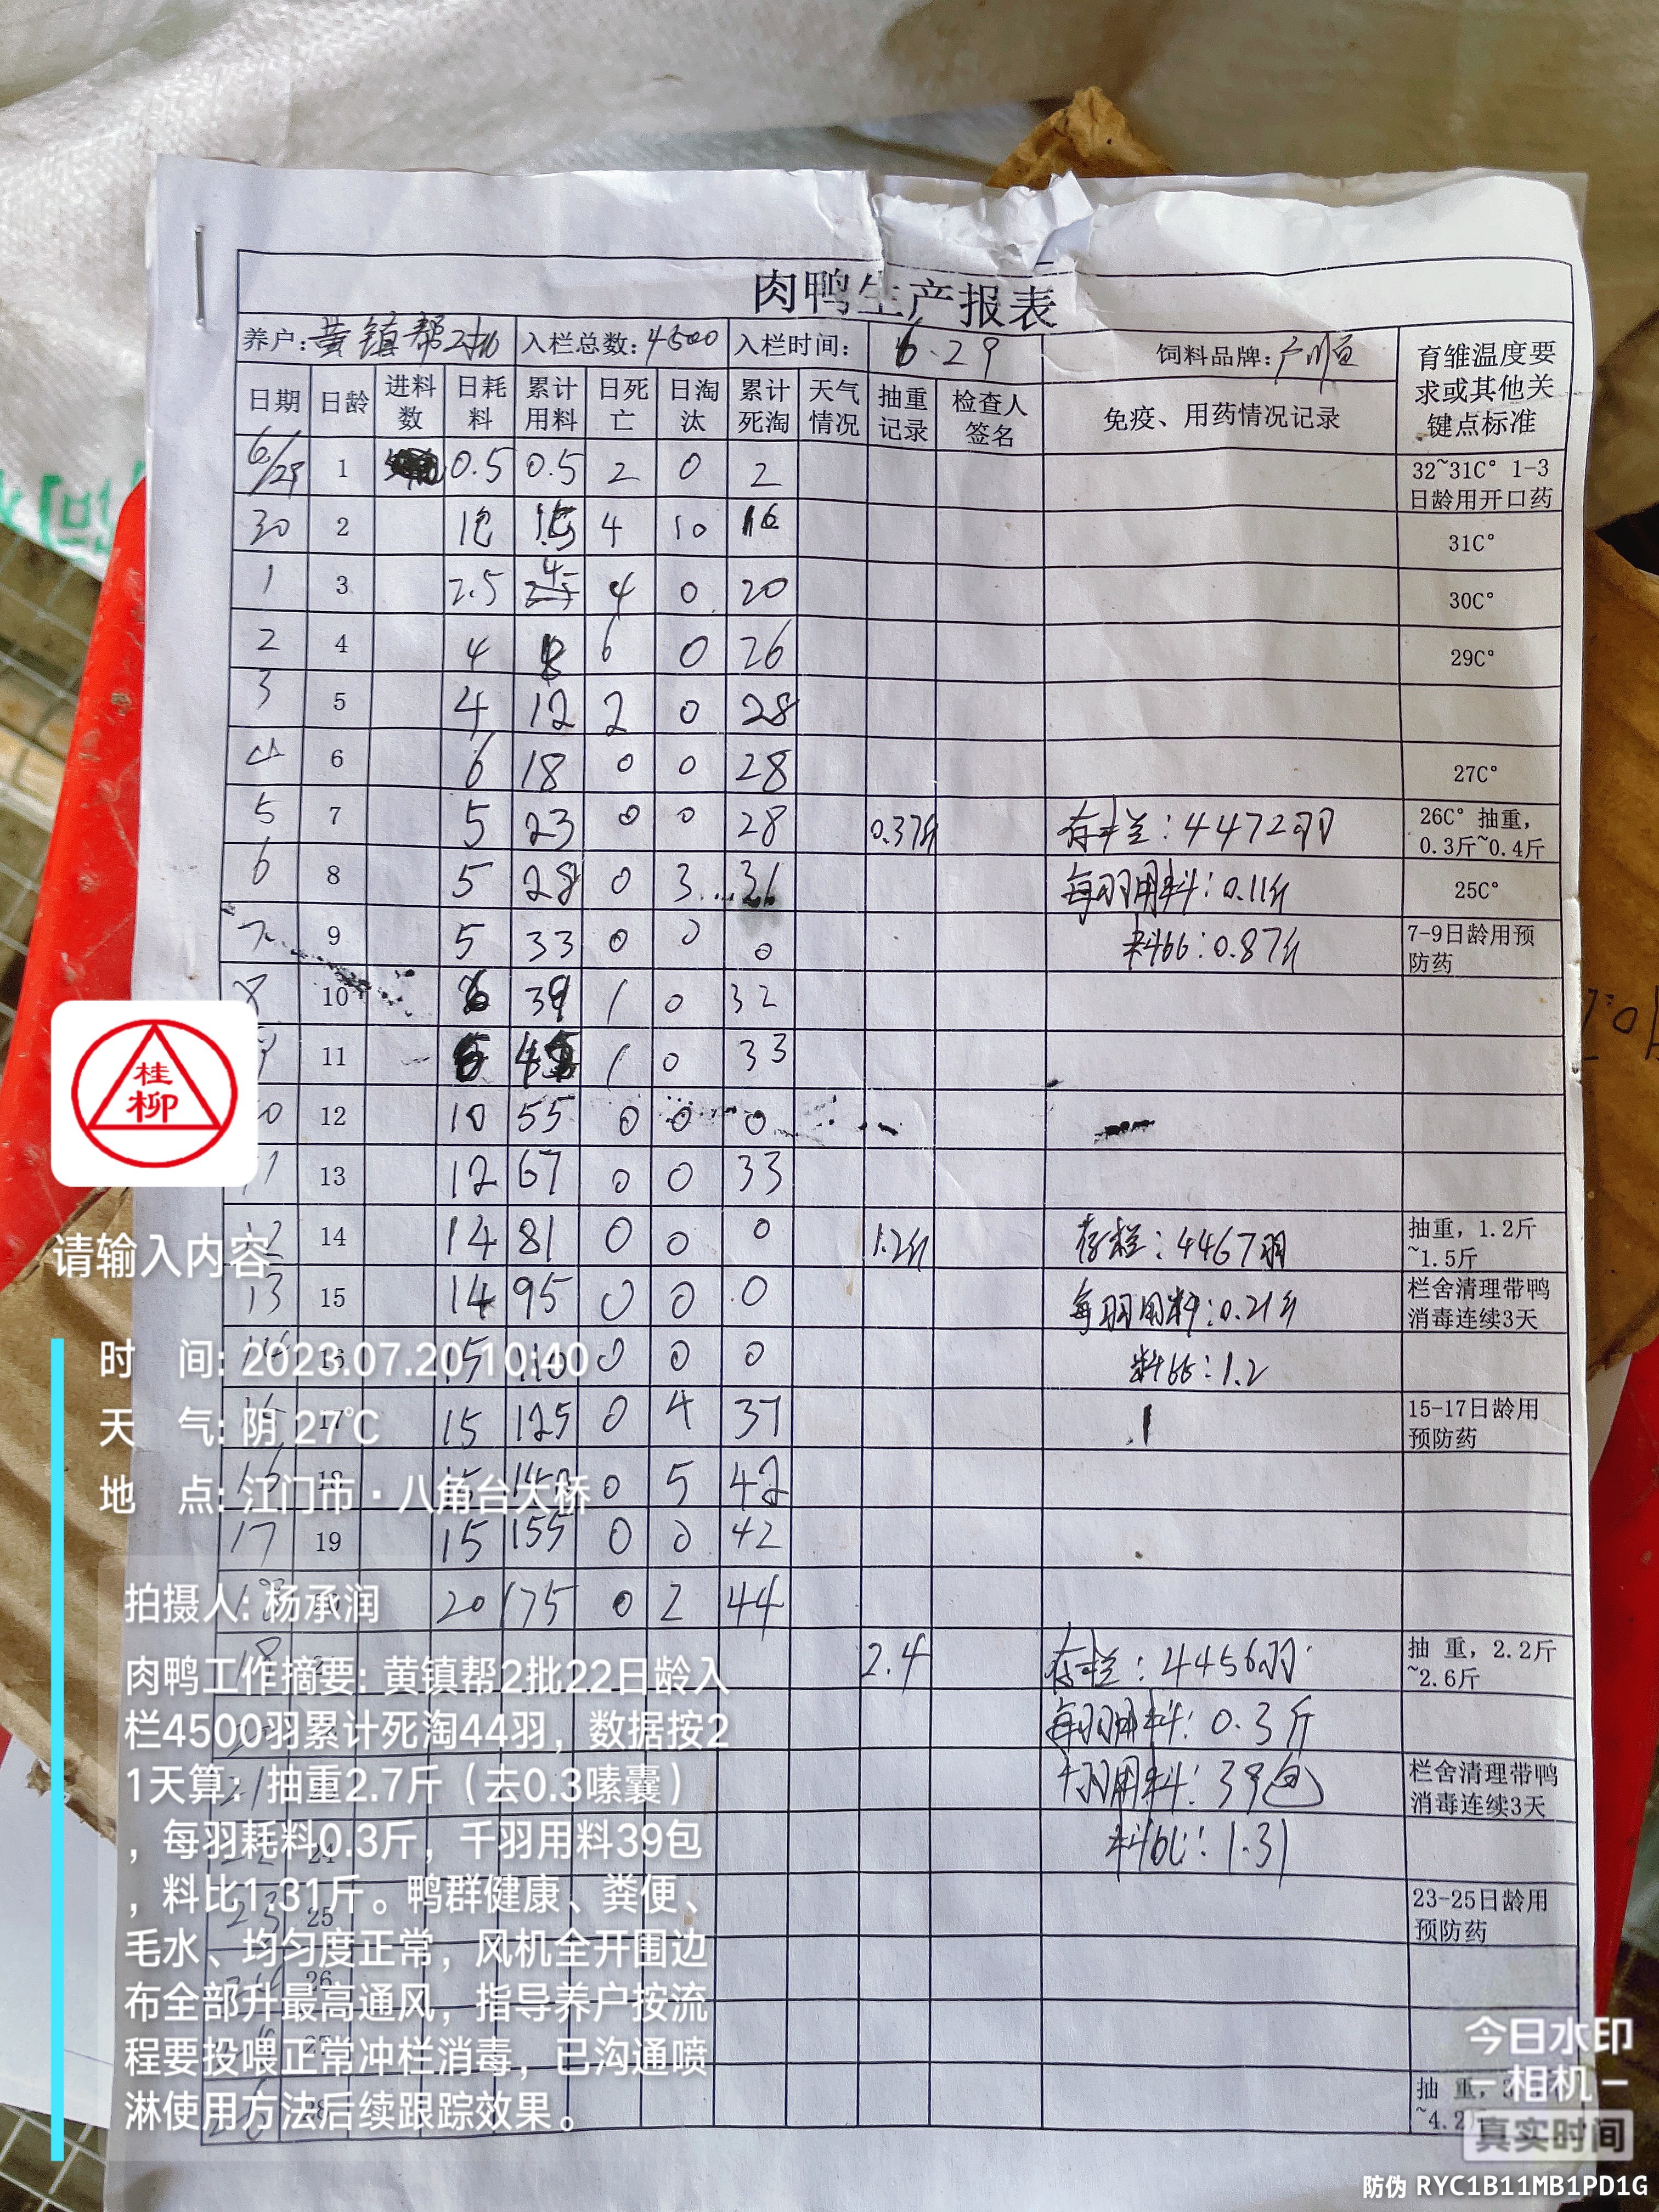 肉鸭生产报表
养户:黄镇帮2批 入栏总数:4500 入栏时间: 6.29 饲料品牌: 育雏温度要求或其他关键点标准
日期 日龄 进料数 日耗料 累计用料 日死亡 日淘汰 累计死淘 天气情况 抽重记录 检查人签名 免疫、用药情况记录
6/29 1 0.5 0.5 2 0 2 32~31C° 1-3日龄用开口药
30 2 4 10 16 31C°
1 3 2.5 4 0 20 30C°
2 4 4 8 6 0 26 29C°
3 5 4 12 2 0 28
4 6 6 18 0 0 28 27C°
5 7 5 23 0 0 28 0.37斤 存栏:4472羽 26C° 抽重,0.3斤~0.4斤
6 8 5 28 0 3 31 每羽用料:0.11斤 25C°
7 9 5 33 0 0 0 料比:0.87斤 7-9日龄用预防药
8 10 6 39 1 0 32
9 11 6 45 1 0 33
10 12 10 55 0 0 0
11 13 12 67 0 0 33
12 14 14 81 0 0 0 1.2斤 存栏:4467羽 抽重,1.2斤~1.5斤
13 15 14 95 0 0 0 每羽用料:0.21斤 栏舍清理带鸭消毒连续3天
14 16 15 110 0 0 0 料比:1.2
15 17 15 125 0 4 37 15-17日龄用预防药
16 18 15 140 0 5 42
17 19 15 155 0 0 42
18 20 175 0 2 44
2.4 存栏:4456羽 抽 重,2.2斤~2.6斤
每羽用料:0.3斤
千羽用料:39包 栏舍清理带鸭消毒连续3天
24 料比:1.31
23 25 23-25日龄用预防药
26
抽 重,3 ~4.2
桂柳
请输入内容
时 间: 2023.07.20 10:40
天 气: 阴 27℃
地 点: 江门市·八角台大桥
拍摄人: 杨承润
肉鸭工作摘要: 黄镇帮2批22日龄入
栏4500羽累计死淘44羽,数据按2
1天算:抽重2.7斤(去0.3嗉囊)
,每羽耗料0.3斤,千羽用料39包
,料比1.31斤。鸭群健康、粪便、
毛水、均匀度正常,风机全开围边
布全部升最高通风,指导养户按流
程要投喂正常冲栏消毒,已沟通喷
淋使用方法后续跟踪效果。
今日水印
相机
真实时间
防伪 RYC1B11MB1PD1G